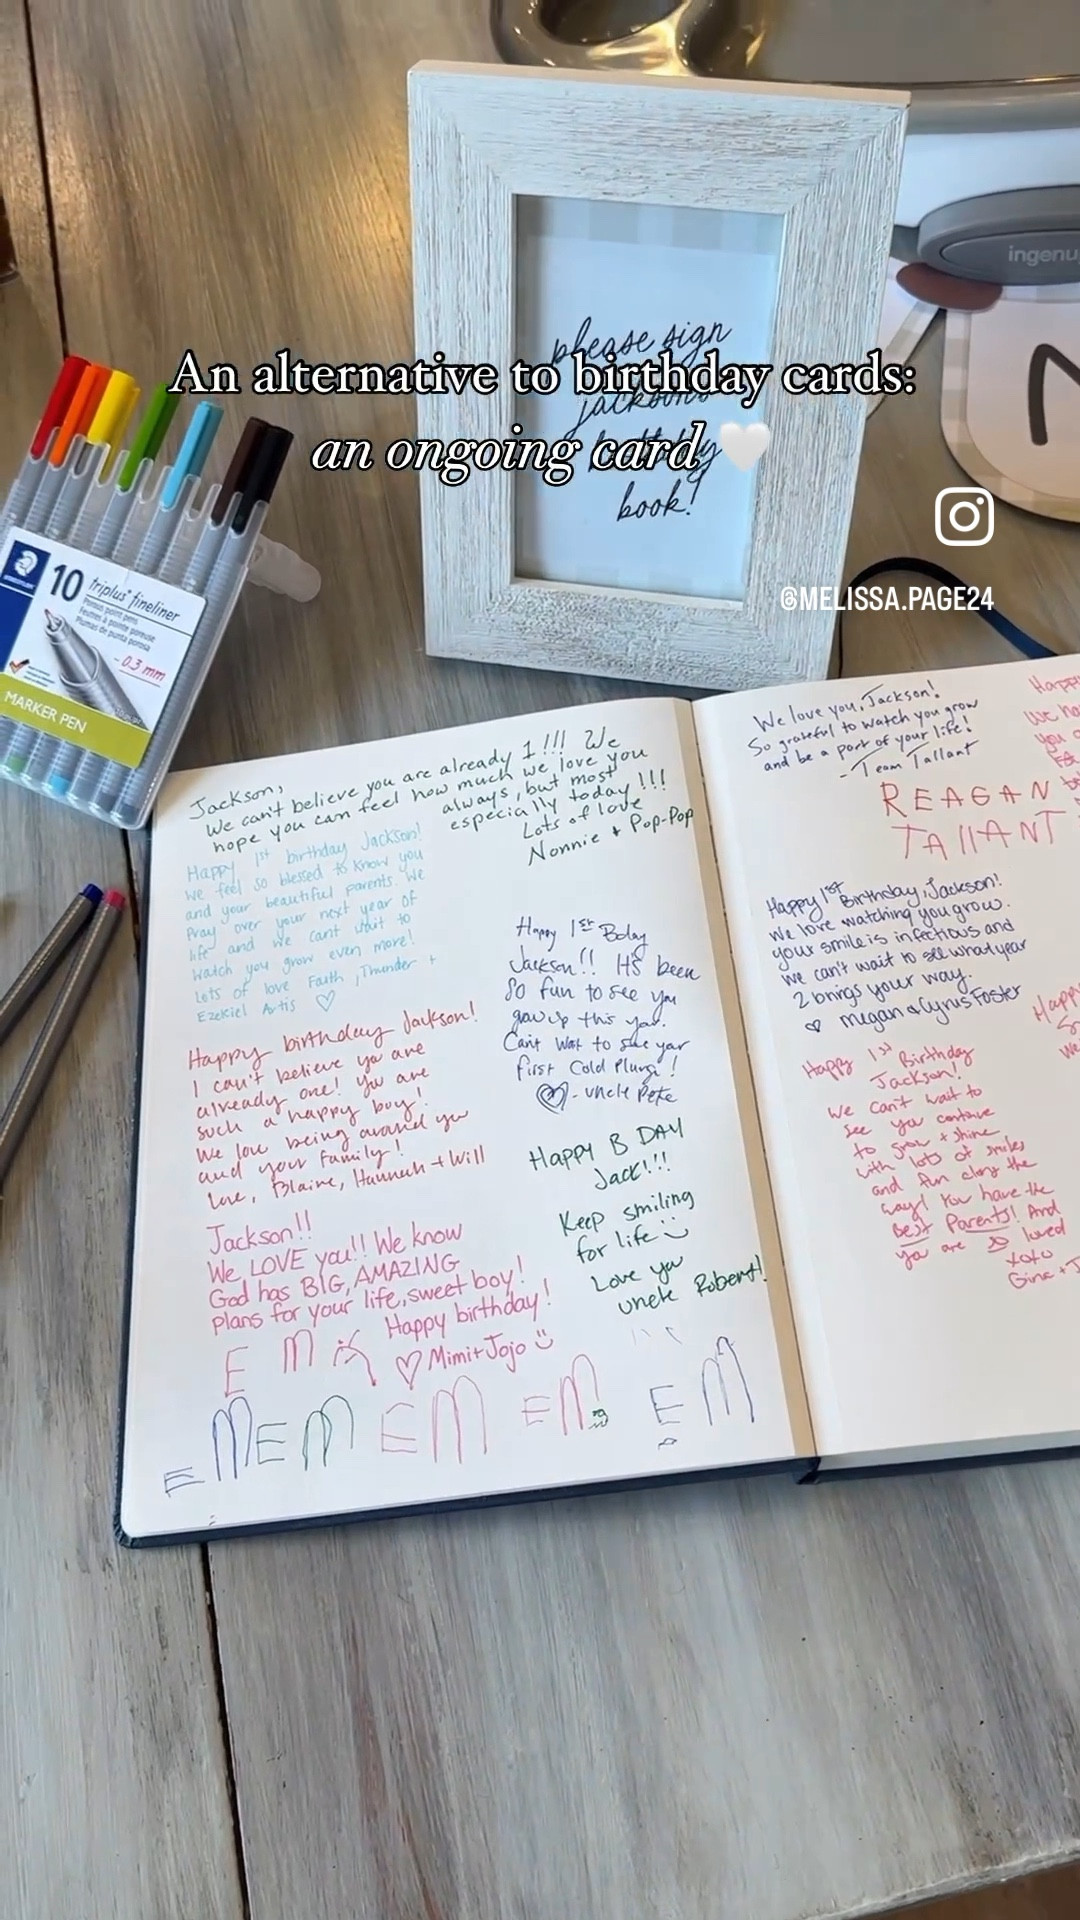 An alternative to birthday cards:
an ongoing card
please sign
jackson's
birthday
book!
ingenu
@MELISSA.PAGE24
STAEDTLER
10 triplus® fineliner
Porous point pens
Feutres à pointe poreuse
Plumas de punta porosa
~0.3 mm
MARKER PEN
Jackson,
We can't believe you are already 1!!! We
hope you can feel how much we love you
always, but most
especially today!!!
Lots of love
Nonnie + Pop-Pop
Happy 1st birthday Jackson!
We feel so blessed to know you
and your beautiful parents. We
Pray over your next year of
life and we cant wait to
watch you grow even more!
Lots of love Faith, Thunder +
Ezekiel Artis ♡
Happy birthday Jackson!
I can't believe you are
already one! You are
such a happy boy!
We love being around you
and your family!
Love, Blaine, Hannah + Will
Jackson!!
We LOVE you!! We know
God has BIG, AMAZING
plans for your life, sweet boy!
Happy birthday!
♡ Mimi + Jojo
E M
E M E M E M E M E M
Happy 1st Bday
Jackson!! It's been
So fun to see you
grow up this year.
Can't wait to see your
first Cold Plunge!
- Uncle Pete
Happy B DAY
Jack!!!
Keep smiling
for life
Love you
uncle Robert!
We love you, Jackson!
So grateful to watch you grow
and be a part of your life!
- Team Tallant
REAGAN
TAllANT
Happy 1st Birthday, Jackson!
We love watching you grow.
your smile is infectious and
we can't wait to see what year
2 brings your way.
♡ Megan & Cyrus Foster
Happy 1st Birthday
Jackson!
We can't wait to
see you continue
to grow + shine
with lots of smiles
and fun along the
way! You have the
Best Parents! And
you are so loved
xoxo
Gina + J
Happy
We
Happy